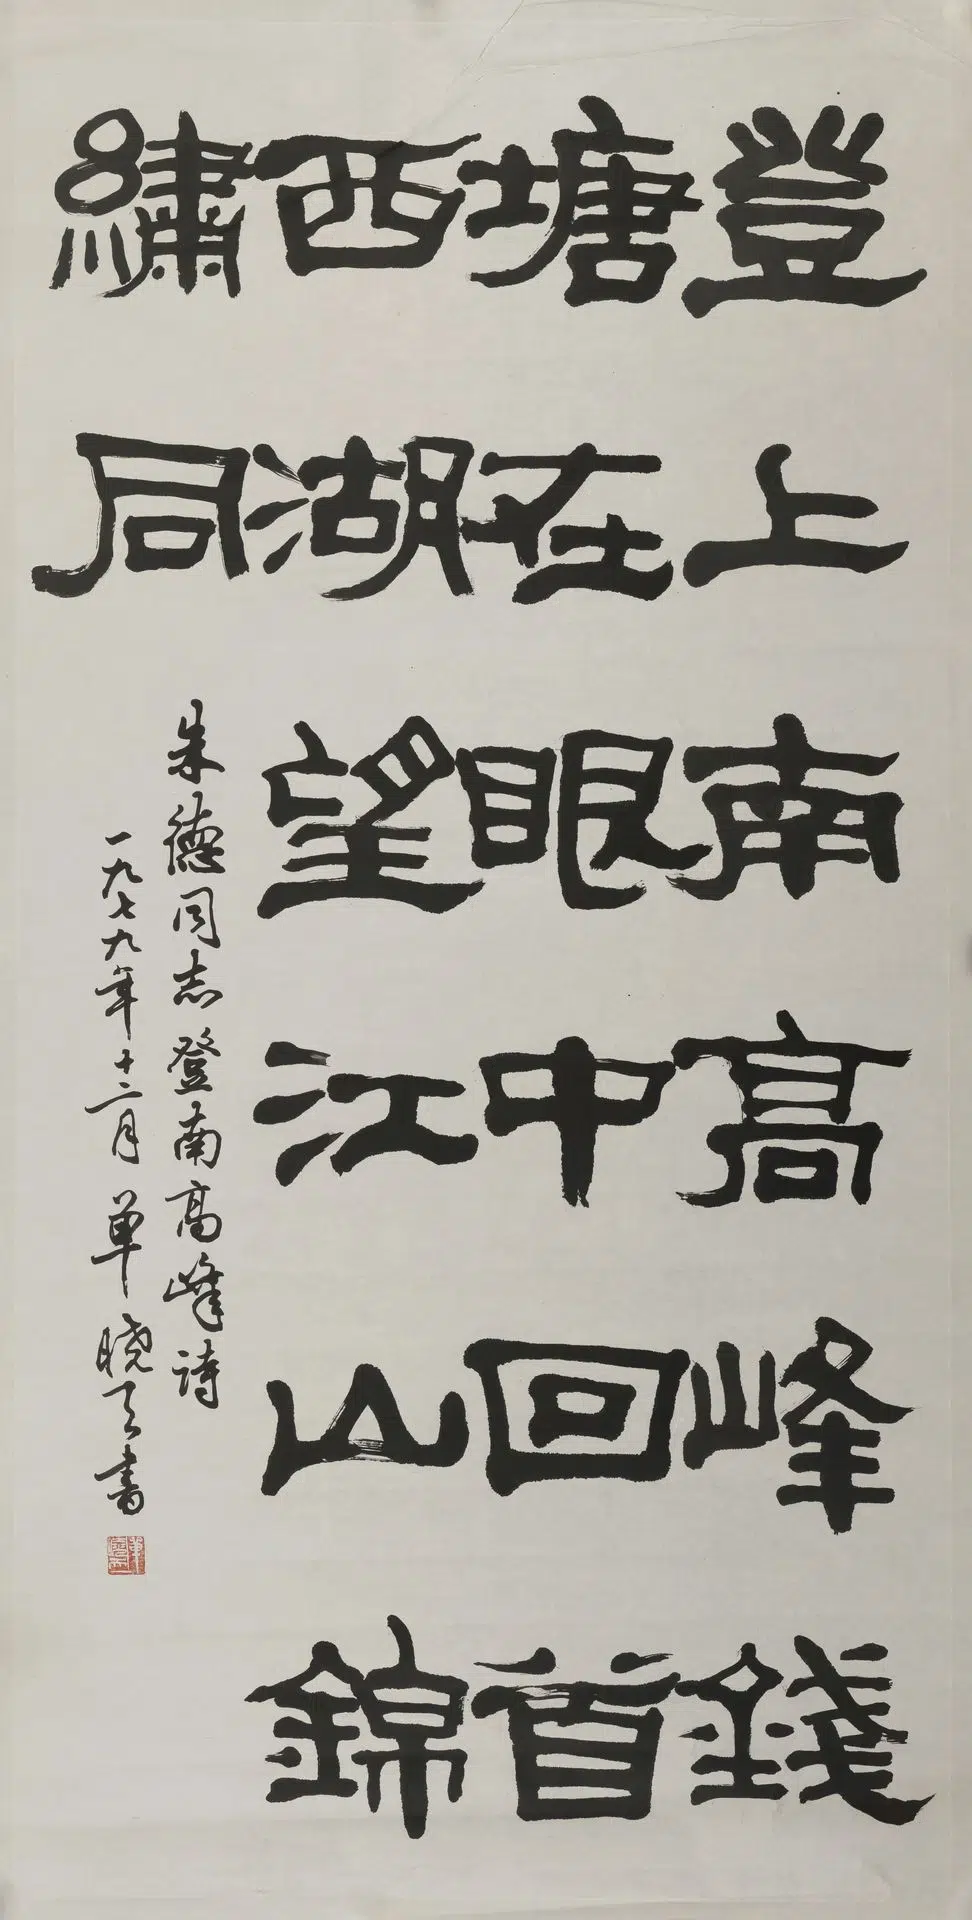 登上南高峰錢
塘在眼中回首
西湖望江山錦
繡同
朱德同志登南高峰詩
一九七九年十二月單曉天書